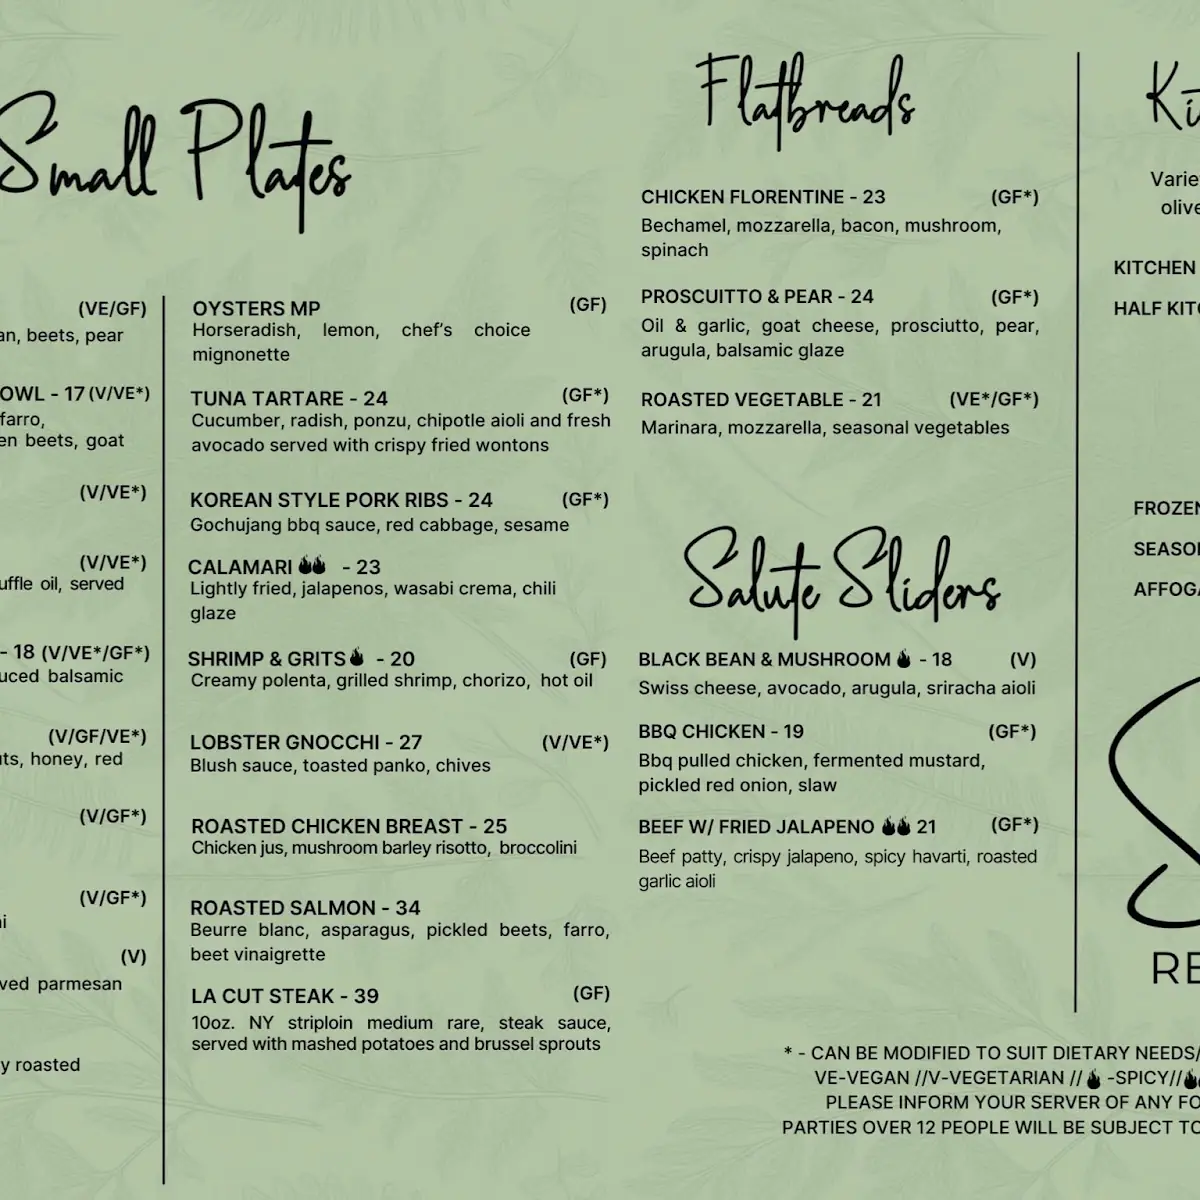 Small Plates
(VE/GF)
beets, pear
17 (V/VE*)
farro,
beets, goat
(V/VE*)
(V/VE*)
oil, served
- 18 (V/VE*/GF*)
balsamic
(V/GF/VE*)
honey, red
(V/GF*)
(V/GF*)
(V)
parmesan
roasted
OYSTERS MP (GF)
Horseradish, lemon, chef's choice
mignonette
TUNA TARTARE - 24 (GF*)
Cucumber, radish, ponzu, chipotle aioli and fresh
avocado served with crispy fried wontons
KOREAN STYLE PORK RIBS - 24 (GF*)
Gochujang bbq sauce, red cabbage, sesame
CALAMARI - 23
Lightly fried, jalapenos, wasabi crema, chili
glaze
SHRIMP & GRITS - 20 (GF)
Creamy polenta, grilled shrimp, chorizo, hot oil
LOBSTER GNOCCHI - 27 (V/VE*)
Blush sauce, toasted panko, chives
ROASTED CHICKEN BREAST - 25
Chicken jus, mushroom barley risotto, broccolini
ROASTED SALMON - 34
Beurre blanc, asparagus, pickled beets, farro,
beet vinaigrette
LA CUT STEAK - 39 (GF)
10oz. NY striploin medium rare, steak sauce,
served with mashed potatoes and brussel sprouts
Flatbreads
CHICKEN FLORENTINE - 23 (GF*)
Bechamel, mozzarella, bacon, mushroom,
spinach
PROSCUITTO & PEAR - 24 (GF*)
Oil & garlic, goat cheese, prosciutto, pear,
arugula, balsamic glaze
ROASTED VEGETABLE - 21 (VE*/GF*)
Marinara, mozzarella, seasonal vegetables
Salute Sliders
BLACK BEAN & MUSHROOM - 18 (V)
Swiss cheese, avocado, arugula, sriracha aioli
BBQ CHICKEN - 19 (GF*)
Bbq pulled chicken, fermented mustard,
pickled red onion, slaw
BEEF W/ FRIED JALAPENO 21 (GF*)
Beef patty, crispy jalapeno, spicy havarti, roasted
garlic aioli
KITCHEN
HALF
* - CAN BE MODIFIED TO SUIT DIETARY NEEDS/
VE-VEGAN //V-VEGETARIAN // -SPICY//
PLEASE INFORM YOUR SERVER OF ANY
PARTIES OVER 12 PEOPLE WILL BE SUBJECT TO